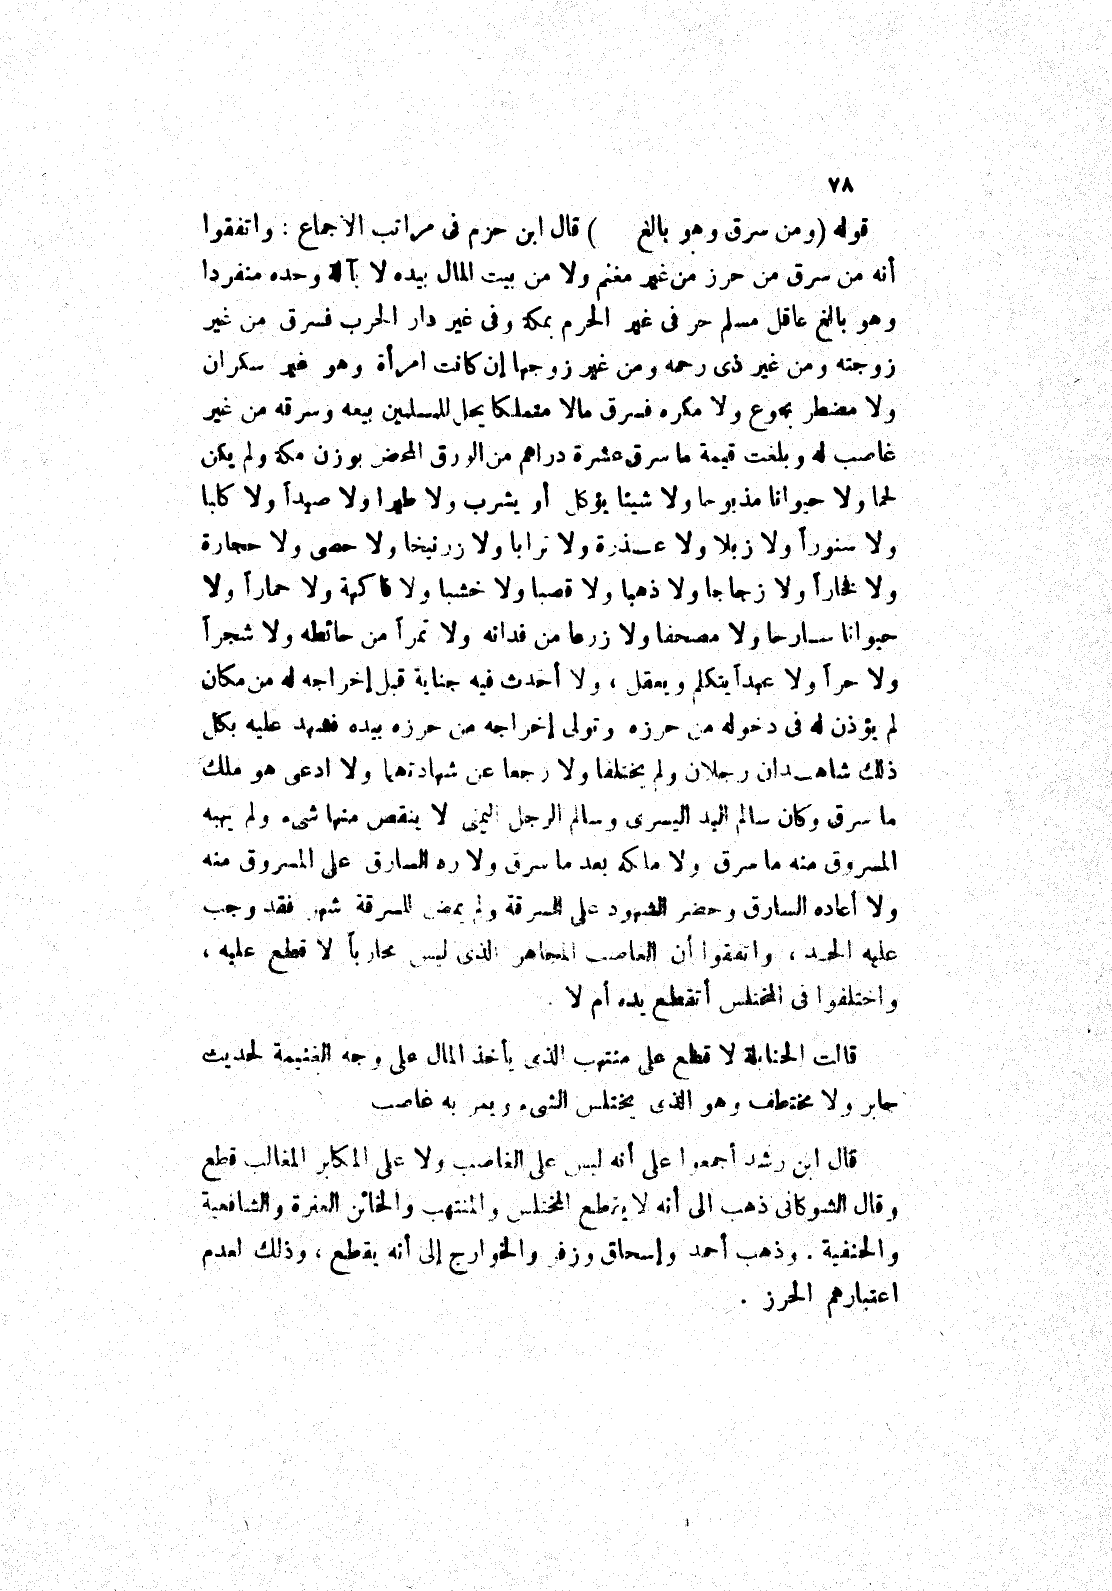 ٧٨
قوله (ومن سرق وهو بالغ ) قال ابن حزم فى مراتب الاجماع : واتفقوا
أنه من سرق من حرز من غير مغنم ولا من بيت المال بيده لا بآلة وحده منفردا
وهو بالغ عاقل مسلم حر فى غير الحرم بمكة وفى غير دار الحرب فسرق من غير
زوجته ومن غير ذى رحمه ومن غير زوجها إن كانت امرأة وهو غير سكران
ولا مضطر بجوع ولا مكره فسرق مالا متملكا يحل للمسلمين بيعه وسرقه من غير
غاصب له وبلغت قيمة ما سرق عشرة دراهم من الورق المحض بوزن مكة ولم يكن
لحما ولا حيوانا مذبوحا ولا شيئا يؤكل أو يشرب ولا طيرا ولا صيداً ولا كلبا
ولا سنوراً ولا زبلا ولا عــذرة ولا ترابا ولا زرنيخا ولا حصى ولا حجارة
ولا فخاراً ولا زجاجا ولا ذهبا ولا قصبا ولا خشبا ولا فاكهة ولا حماراً ولا
حيوانا ســارحا ولا مصحفا ولا زرعا من فدانه ولا تمراً من حائطه ولا شجراً
ولا حراً ولا عبداً يتكلم ويعقل ، ولا أحدث فيه جناية قبل إخراجه له من مكان
لم يؤذن له فى دخوله من حرزه وتولى إخراجه من حرزه بيده فشهد عليه بكل
ذلك شاهــدان رجلان ولم يختلفا ولا رجعا عن شهادتهما ولا ادعى هو ملك
ما سرق وكان سالم اليد اليسرى وسالم الرجل اليمنى لا ينقص منها شىء ولم يهبه
المسروق منه ما سرق ولا ملكه بعد ما سرق ولا رده السارق على المسروق منه
ولا أعاده السارق وحضر الشهود على السرقة ولم يمض للسرقة شهر فقد وجب
عليه الحــد ، واتفقوا أن الغاصب المجاهر الذى ليس محارباً لا قطع عليه ،
واختلفوا فى المختلس أتقطع يده أم لا .
قالت الحنابلة لا قطع على منتهب الذى يأخذ المال على وجه الغنيمة لحديث
جابر ولا مختطف وهو الذى يختلس الشىء ويمر به غاصب
قال ابن رشد أجمعوا على أنه ليس على الغاصب ولا على المكابر المغالب قطع
وقال الشوكانى ذهب الى أنه لا يقطع المختلس والمنتهب والخائن العترة والشافعية
والحنفية . وذهب أحمد وإسحاق وزفر والخوارج إلى أنه يقطع ، وذلك لعدم
اعتبارهم الحرز .